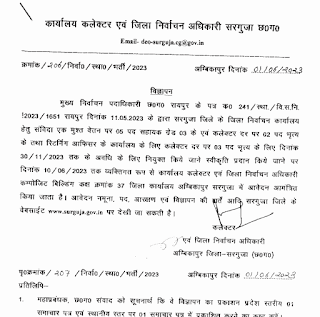 कार्यालय कलेक्टर एवं जिला निर्वाचन अधिकारी सरगुजा छ0ग0
Email- deo-surguja.cg@gov.in
क्रमांक /206/निर्वा0/स्था0/भर्ती/2023 अम्बिकापुर दिनांक 01/06/2023
विज्ञापन
मुख्य निर्वाचन पदाधिकारी छ0ग0 रायपुर के पत्र क0 241/स्था./वि.स.नि.
/2023/1651 रायपुर दिनांक 11.05.2023 के द्वारा सरगुजा जिले के जिला निर्वाचन कार्यालय
हेतु संविदा एक मुश्त वेतन पर 05 पद सहायक ग्रेड 03 के एवं कलेक्टर दर पर 02 पद भृत्य
के तथा रिटर्निंग आफिसर के कार्यालय के लिए कलेक्टर दर पर 03 पद भृत्य के लिए दिनांक
30/11/2023 तक के अवधि के लिए नियुक्त किये जाने स्वीकृति प्रदान किये जाने पर
दिनांक 10/06/2023 तक व्यक्तिगत रूप से कार्यालय कलेक्टर एवं जिला निर्वाचन अधिकारी
कम्पोजिट बिल्डिंग कक्ष क्रमांक 37 जिला कार्यालय अम्बिकापुर सरगुजा में आवेदन आमंत्रित
किया जाता है। आवेदन नमूना, पद, आरक्षण एवं विज्ञापन की शर्तें आदि सरगुजा जिले के
वेबसाईट www.surguja.gov.in पर देखी जा सकती है।
कलेक्टर
एवं जिला निर्वाचन अधिकारी
अम्बिकापुर जिला-सरगुजा
पृ0क्रमांक/ 207 /निर्वा0/स्था0/भर्ती/2023 अम्बिकापुर दिनांक 01/06/2023
प्रतिलिपि-
1. महाप्रबंधक, छ0ग0 संवाद को सूचनार्थ कि वे विज्ञापन का प्रकाशन प्रदेश स्तरीय 01
समाचार पत्र एवं स्थानीय स्तर पर 01 समाचार पत्र में प्रकाशित करने का कष्ट करें।